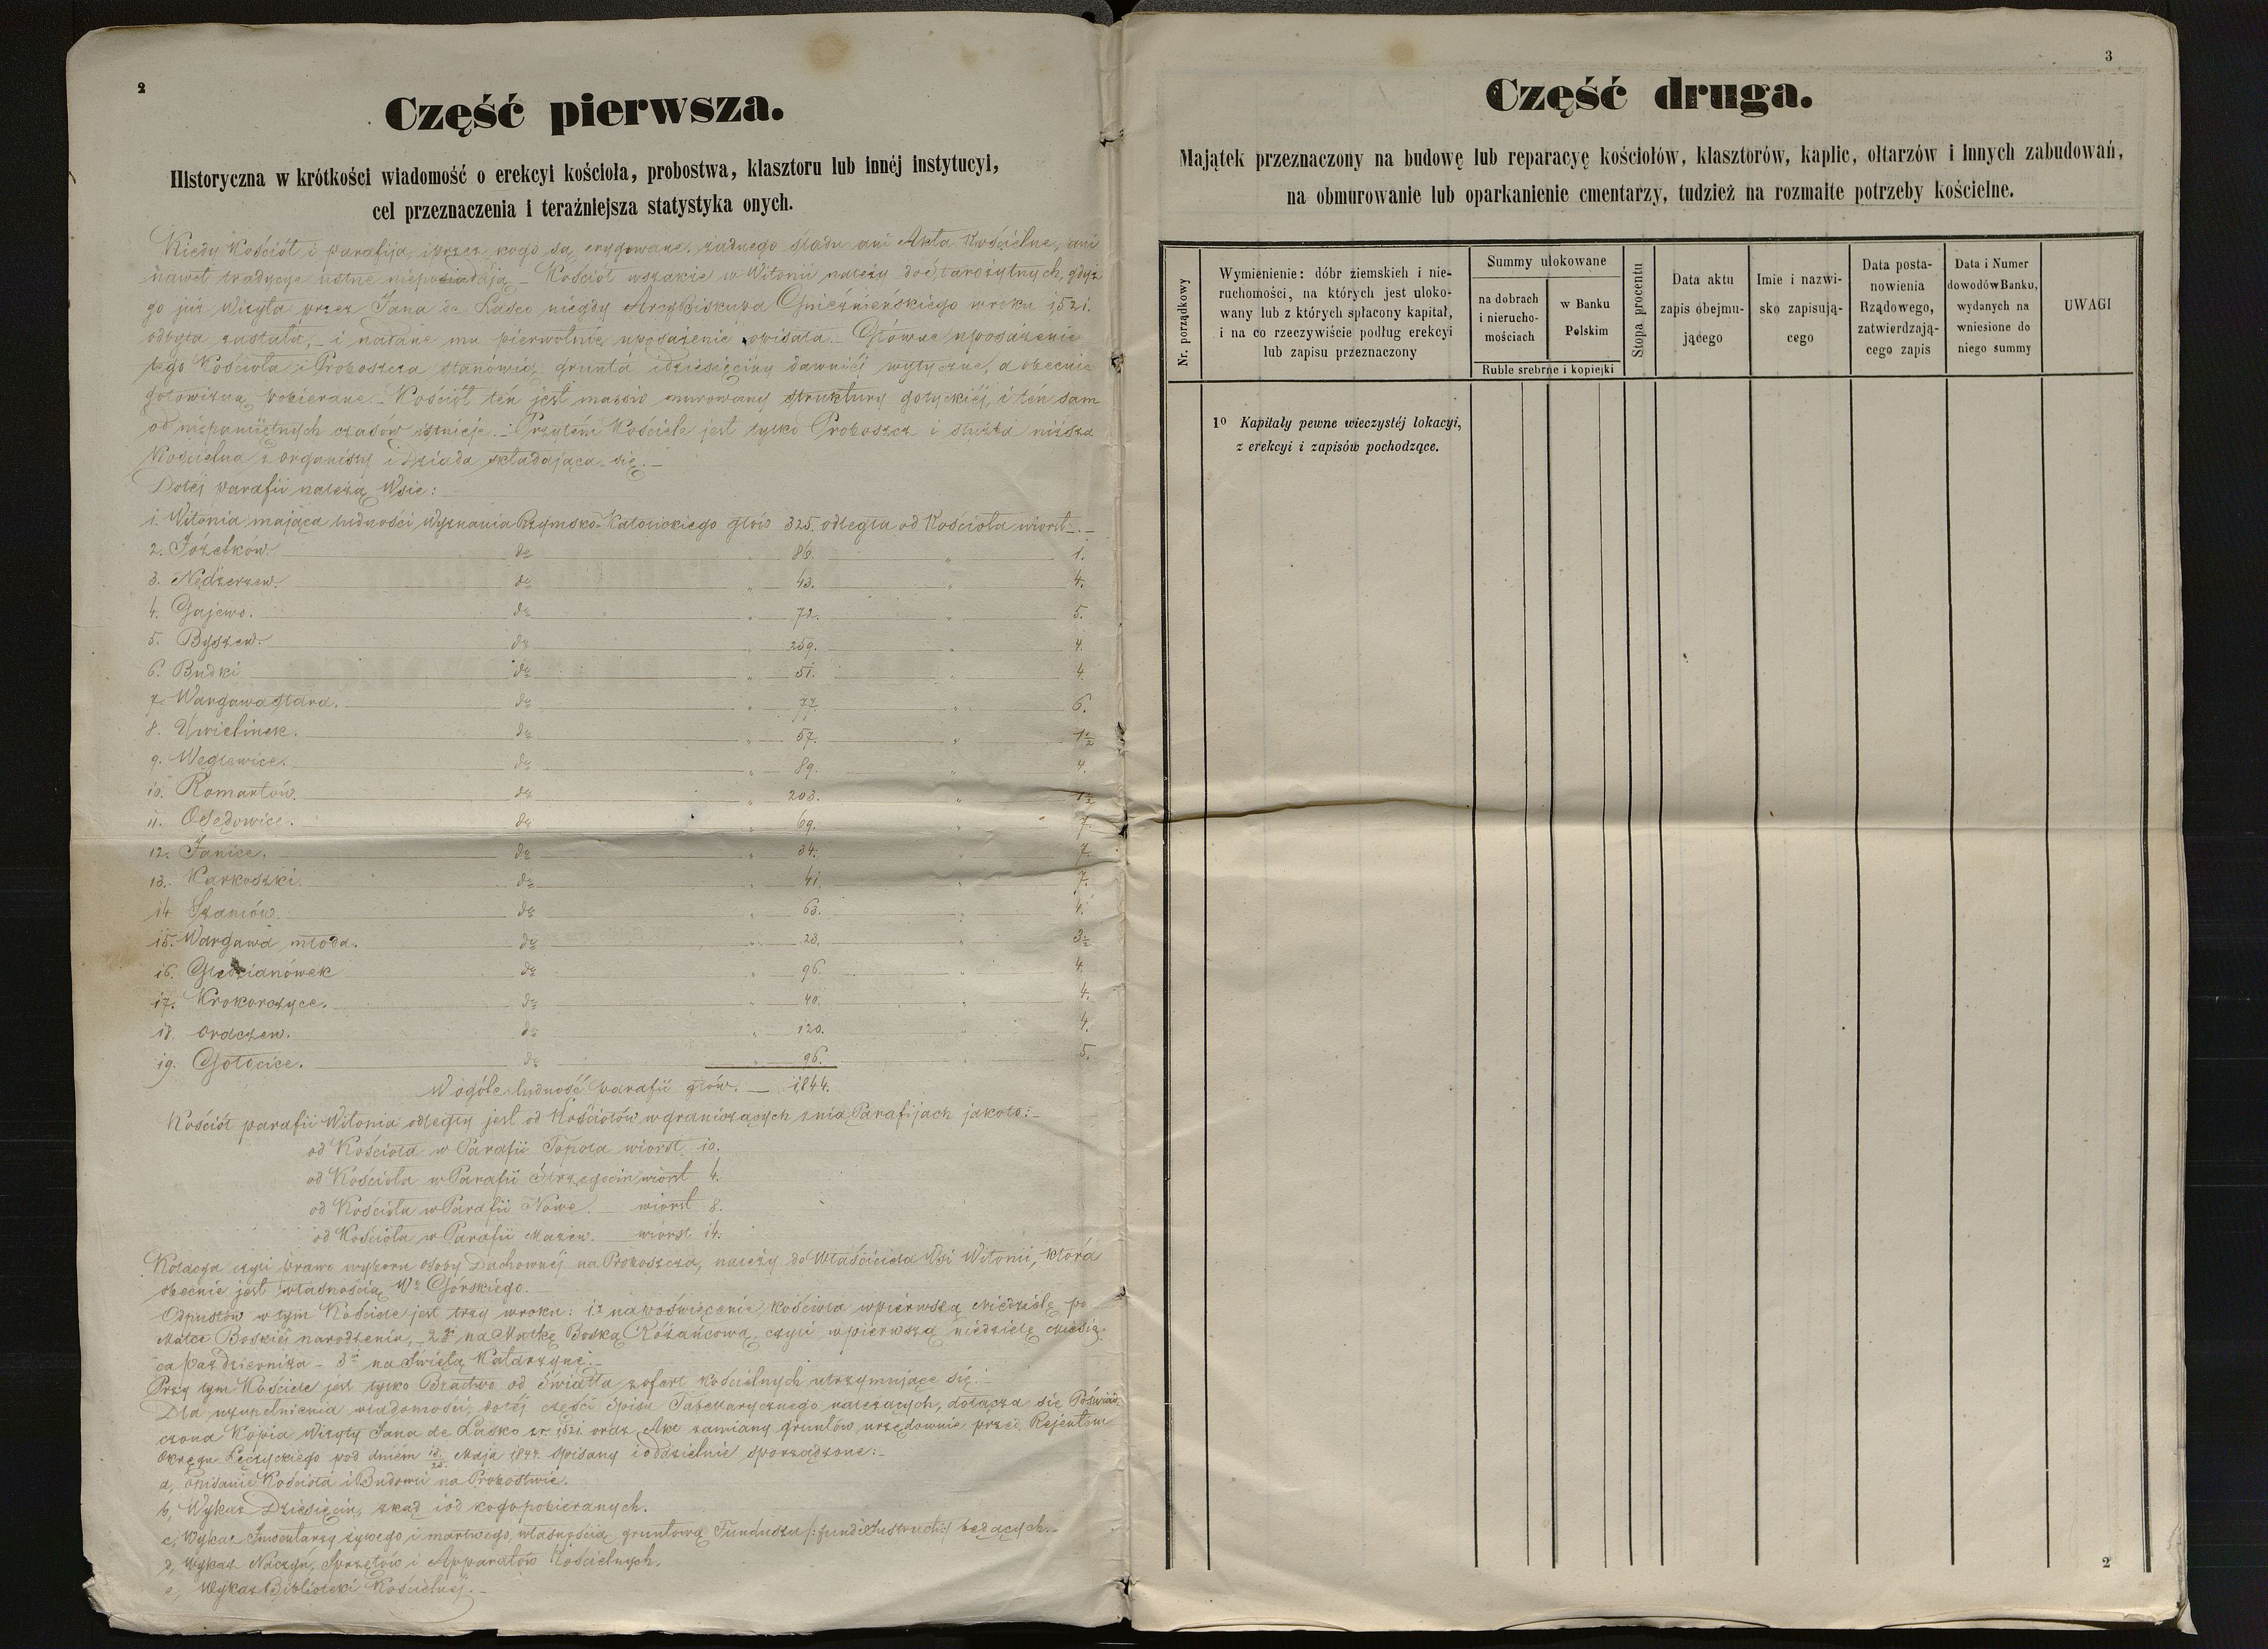 2
Część pierwsza.
Historyczna w krótkości wiadomość o erekcyi kościoła, probostwa, klasztoru lub innéj instytucyi,
cel przeznaczenia i teraźniejsza statystyka onych.
Kiedy Kościół i parafija, i przez kogo są erygowane, żadnego śladu ani Akta Kościelne, ani
nawet tradycye ustne nieposiadają. – Kościół wszakże w Witonii należy do starożytnych, gdyż
go już Wizyta przez Jana de Lasco niegdy Arcybiskupa Gnieźnieńskiego w roku 1521.
odbyta zastała, – i nadane mu pierwotnie uposażenie opisała. – Główne uposażenie
tego Kościoła i Proboszcza stanowią grunta i dziesięciny dawniéj wytyczne, a obecnie
gotowizną pobierane. – Kościół ten jest massiv murowany struktury gotyckiéj, i ten sam
od niepamiętnych czasów istnieje. – Przy tém Kościele jest tylko Proboszcz i służba niższa
Kościelna z organisty i Dziada składająca się. –
Do téj parafii należą Wsie:
1. Witonia mająca ludności Wyznania Rzymsko-Katolickiego głów 325. odległa od Kościoła wiorst – . –
2. Józefków. do „ 86. „ 1.
3. Nędzerzew. do „ 43. „ 4.
4. Gajewo. do „ 72. „ 5.
5. Byszew. do „ 259. „ 4.
6. Budki do „ 51. „ 4.
7. Wargawa stara. do „ 77. „ 6.
8. Uwielinek. do „ 57. „ 1½
9. Węglewice. do „ 89. „ 4.
10. Romartów. do „ 203. „ 1½
11. Osędowice. do „ 69. „ 7.
12. Janice. do „ 34. „ 7.
13. Karkoszki. do „ 41. „ 7.
14 Szamów. do „ 63. „ 4.
15. Wargawa młoda. do „ 23. „ 3½
16. Gledzianówek do „ 96. „ 4.
17. Krokorczyce. do „ 40. „ 4.
18. Oraczew. do „ 120. „ 4.
19. Gołocice. do „ 96. „ 5.
W ogóle ludność parafii głów. – 1,844.
Kościół parafii Witonia odległy jest od Kościołów w graniczących z nią Parafijach jakoto: –
od Kościoła w Parafii Topola wiorst 10.
od Kościoła w Parafii Strzegocin wiorst 4.
od Kościoła w Parafii Nowe. wiorst 8.
od Kościoła w Parafii Mazew. wiorst 14.
Kolacya czyli prawo wyboru osoby Duchownéj na Proboszcza, należy do Właściciela Wsi Witonii, która
obecnie jest własnością Wo Górskiego. –
Odpustów w tym Kościele jest trzy w roku: 1o na poświęcenie kościoła w pierwszą Niedzielę po
Matce Boskiéj narodzenia, – 2o na Matkę Boską Różańcową, czyli w pierwszą niedzielę Miesią-
ca października – 3o na Świętą Katarzynę. –
Przy tym Kościele jest tylko Bractwo od Światła z ofert kościelnych utrzymujące się. –
Dla uzupełnienia wiadomości, do téj części Spisu Tabellarycznego należących, dołącza się Poświad-
czona Kopia Wizyty Jana de Lasko z r. 1521. oraz Akt zamiany gruntów urzędownie przed Rejentem
Okręgu Łęczyckiego pod dniem Maja 1847. spisany i oddzielnie sporządzone: –
a, Opisanie Kościoła i Budowli na Probostwie.
b, Wykaz Dziesięcin, skąd i od kogo pobieranych.
c, Wykaz Inwentarzy żywego i martwego, własnością gruntową Funduszu /: fundi Instructi :/ będących. –
d, Wykaz Naczyń, Sprzętów i Apparatów Kościelnych.
e, Wykaz Biblioteki Kościelnéj. –
3
Część druga.
Majątek przeznaczony na budowę lub reparacyę kościołów, klasztorów, kaplic, ołtarzów i innych zabudowań,
na obmurowanie lub oparkanienie cmentarzy, tudzież na rozmaite potrzeby kościelne.
Nr. porządkowy
Wymienienie: dóbr ziemskich i nie-
ruchomości, na których jest uloko-
wany lub z których spłacony kapitał,
i na co rzeczywiście podług erekcyi
lub zapisu przeznaczony
Summy ulokowane
na dobrach
i nierucho-
mościach
w Banku
Polskim
Ruble srebrne i kopiejki
Stopa procentu
Data aktu
zapis obejmu-
jącego
Imie i nazwi-
sko zapisują-
cego
Data posta-
nowienia
Rządowego,
zatwierdzają-
cego zapis
Data i Numer
dowodów Banku,
wydanych na
wniesione do
niego summy
UWAGI
1o Kapitały pewne wieczystéj lokacyi,
z erekcyi i zapisów pochodzące.
2